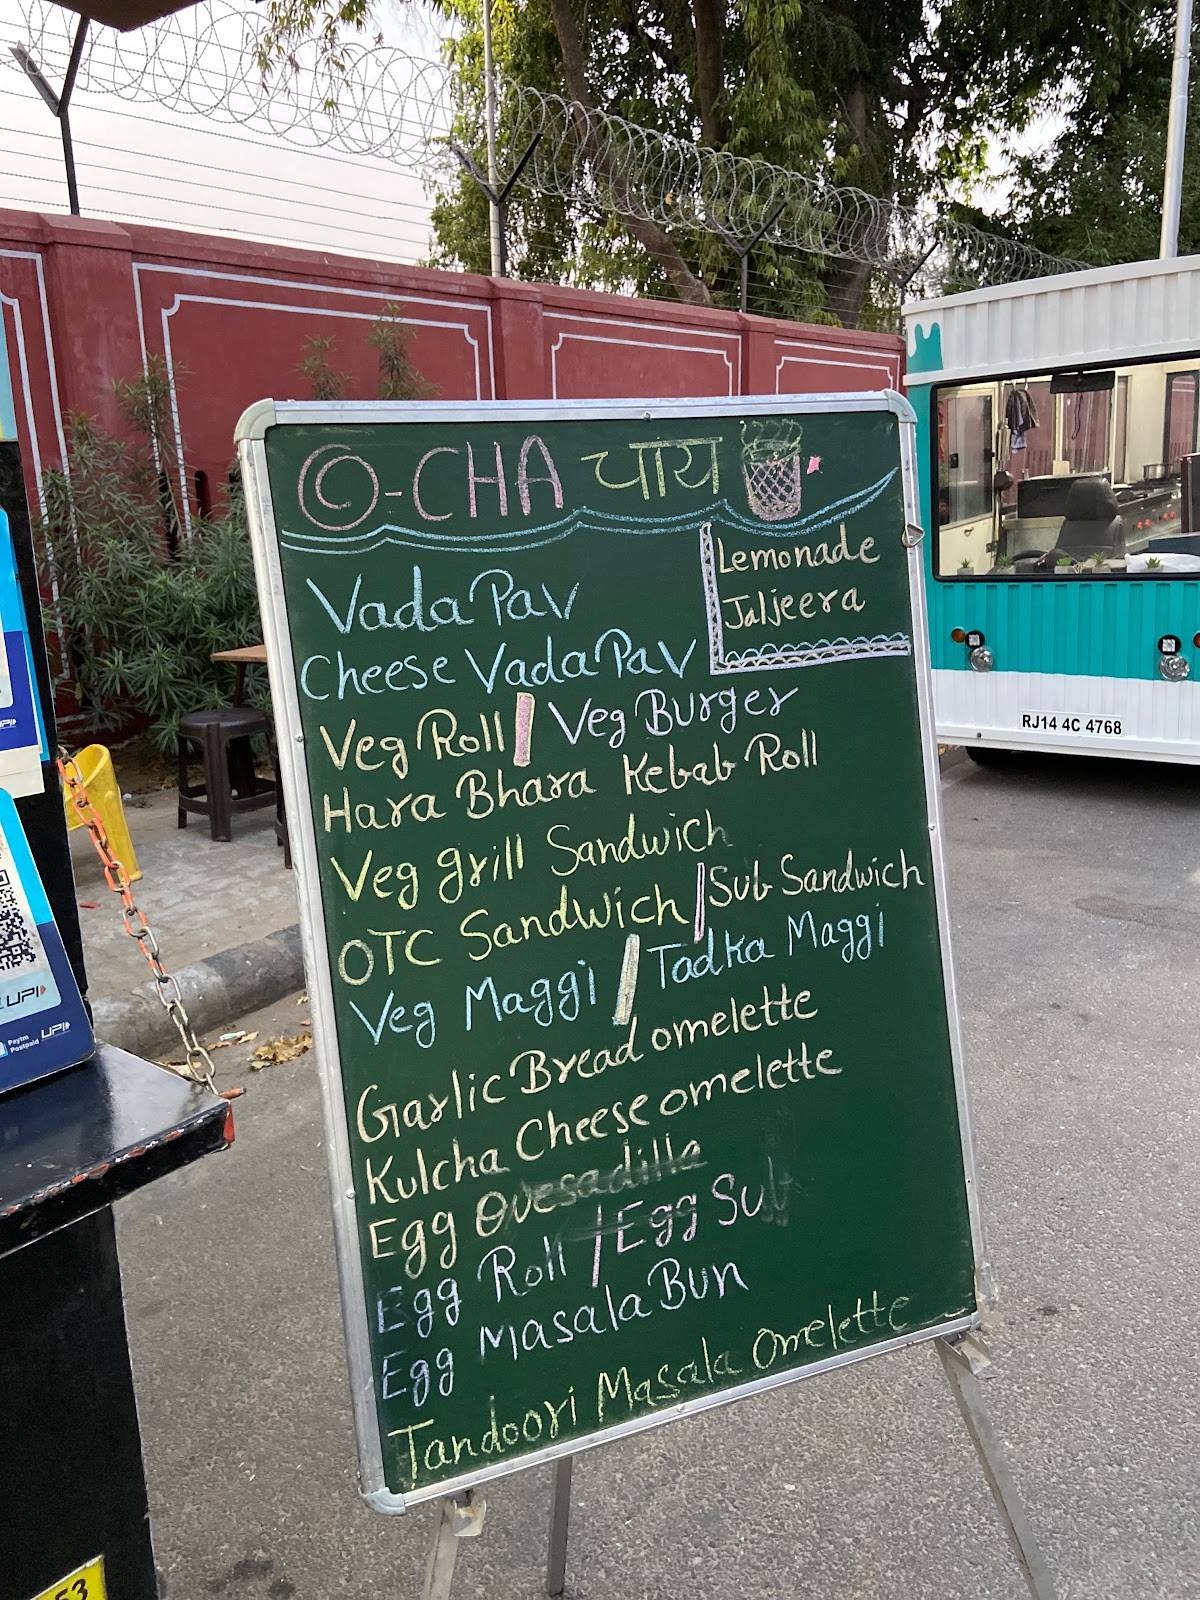 O-CHA चाय
Lemonade
Jaljeera
Vada Pav
Cheese Vada Pav
Veg Roll / Veg Burger
Hara Bhara Kebab Roll
Veg grill Sandwich
OTC Sandwich / Sub Sandwich
Veg Maggi / Tadka Maggi
Garlic Bread omelette
Kulcha Cheese omelette
Egg Quesadilla
Egg Roll / Egg Sub
Egg Masala Bun
Tandoori Masala Omelette
RJ14 4C 4768
UPI
Paytm
Postpaid
UPI
53